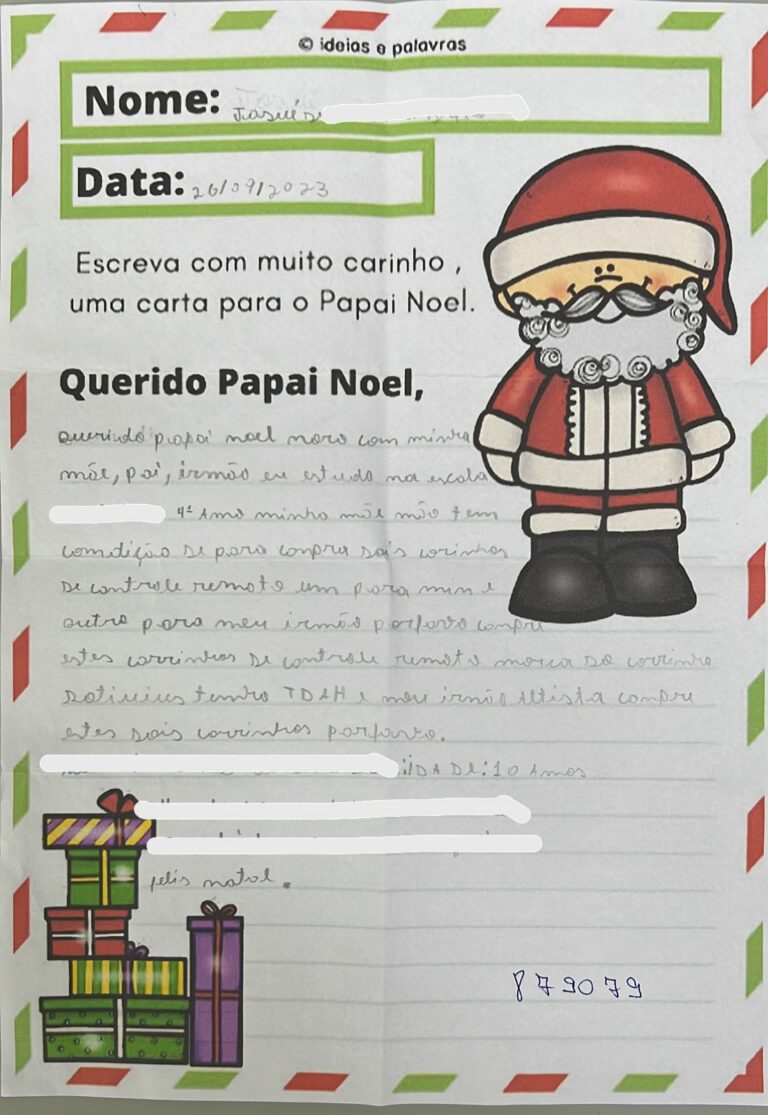 © ideias e palavras
Nome:
Data: 26/09/2023
Escreva com muito carinho ,
uma carta para o Papai Noel.
Querido Papai Noel,
querido papai noel moro com minha
mãe, pai, irmão eu estudo na escola
4º Amo minha mãe mão tem
comdição de para conpra dois corinhos
de controle remoto um para min e
outro para meu irmão porfavo conpri
estes corrinhos de controle remoto marca do corrinho
tenho TDAH e meu irmão Altista compri
estes dois corrinhos porfavo.
:IDADE:10 Amos
felis natol.
879079